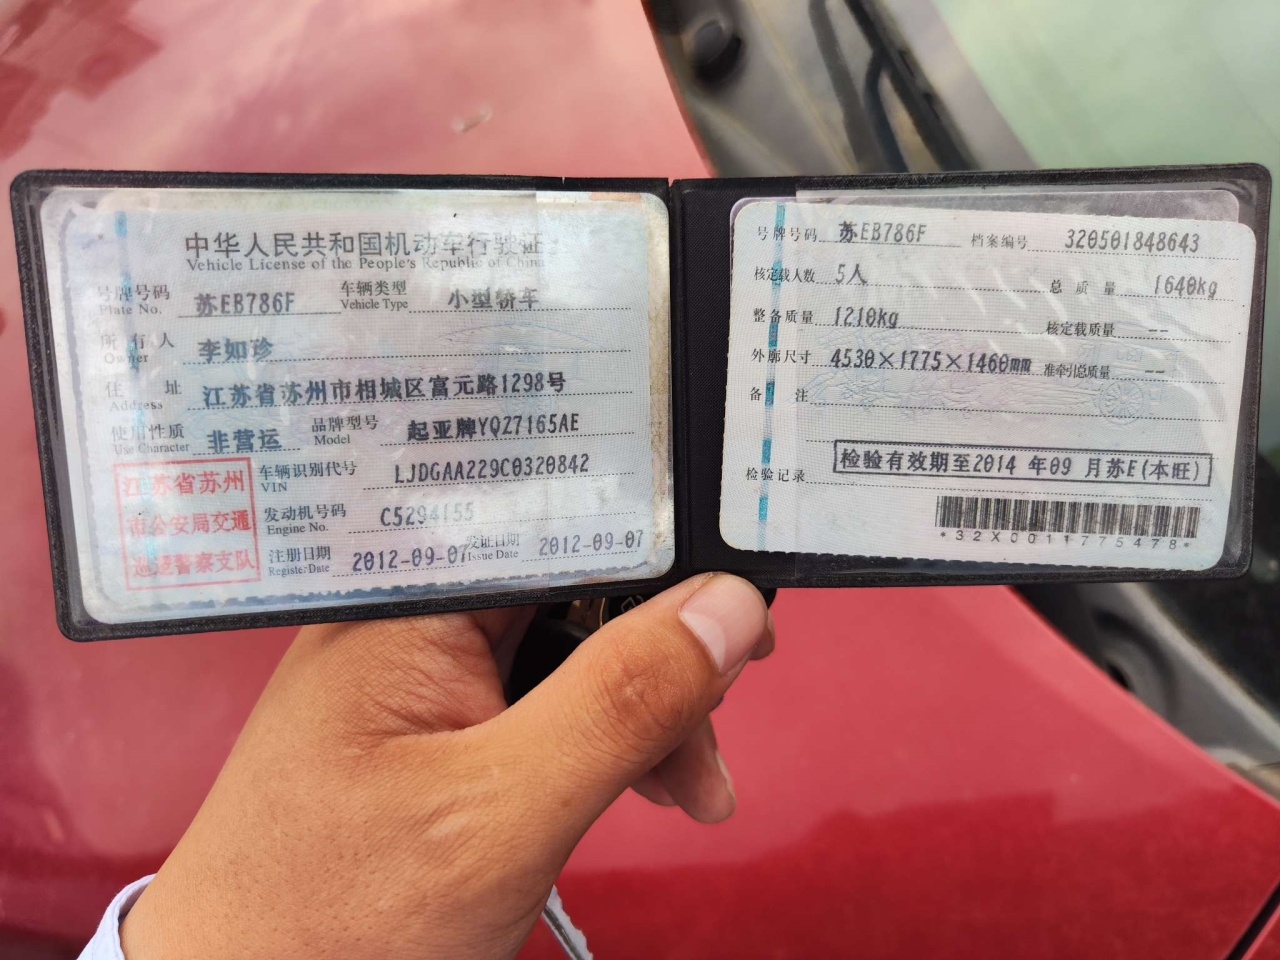 中华人民共和国机动车行驶证
Vehicle License of the People's Republic of China
号牌号码 苏EB786F 车辆类型 小型轿车
Plate No. Vehicle Type
所有人 李如珍
Owner
住址 江苏省苏州市相城区富元路1298号
Address
使用性质 非营运 品牌型号 起亚牌YQZ7165AE
Use Character Model
江苏省苏州
市公安局交通
巡逻警察支队
车辆识别代号 LJDGAA229C0320842
VIN
发动机号码 C5294155
Engine No.
注册日期 2012-09-07 发证日期 2012-09-07
Register Date Issue Date
号牌号码 苏EB786F 档案编号 320501848643
核定载人数 5人 总质量 1640kg
整备质量 1210kg 核定载质量 --
外廓尺寸 4530×1775×1460mm 准牵引总质量 --
备注
检验记录 检验有效期至2014 年09 月苏E(本旺)
*32X0011775478*